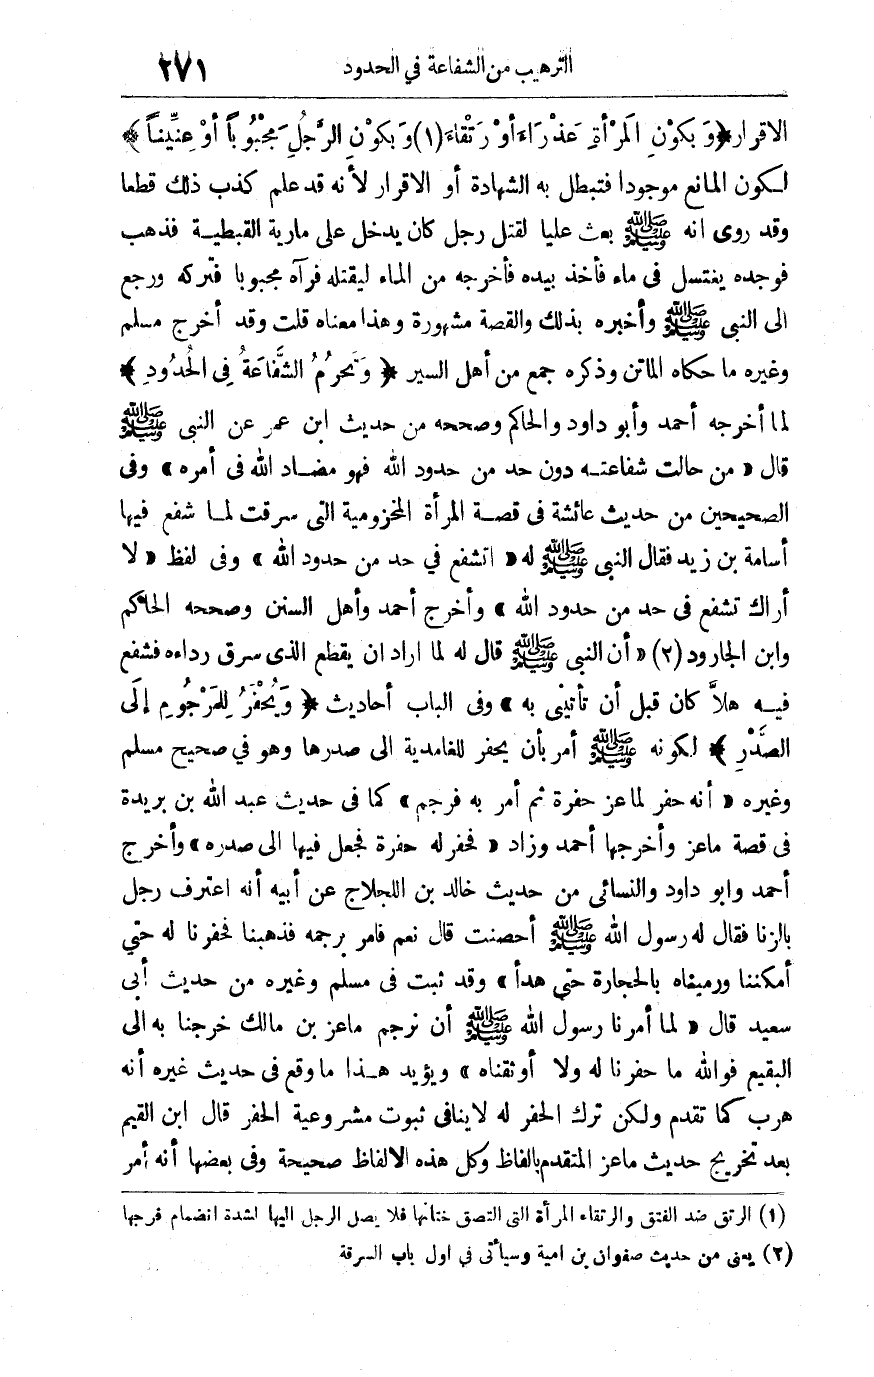 الترهيب من الشفاعة في الحدود ٢٧١
الاقرار ﴿وَبكَوْنِ الْمَرْأَةِ عَذْرَاءَ أَوْ رَتْقَاءَ (١) وَبكَوْنِ الرَّجُلِ مَجْبُوباً أَوْ عِنِّيناً﴾
لكون المانع موجودا فتبطل به الشهادة أو الاقرار لأنه قد علم كذب ذلك قطعا
وقد روى انه ﷺ بعث عليا لقتل رجل كان يدخل على مارية القبطية فذهب
فوجده يغتسل فى ماء فأخذ بيده فأخرجه من الماء ليقتله فرآه مجبوبا فتركه ورجع
الى النبى ﷺ وأخبره بذلك والقصة مشهورة وهذا معناه قلت وقد أخرج مسلم
وغيره ما حكاه الماتن وذكره جمع من أهل السير ﴿ وَتَحرُمُ الشَّفَاعَةُ فِى الْحُدُودِ ﴾
لما أخرجه أحمد وأبو داود والحاكم وصححه من حديث ابن عمر عن النبى ﷺ
قال « من حالت شفاعته دون حد من حدود الله فهو مضاد الله فى أمره » وفى
الصحيحين من حديث عائشة فى قصة المرأة المخزومية التى سرقت لما شفع فيها
أسامة بن زيد فقال النبى ﷺ له « اتشفع في حد من حدود الله » وفى لفظ « لا
أراك تشفع فى حد من حدود الله » وأخرج أحمد وأهل السنن وصححه الحاكم
وابن الجارود (٢) « أن النبى ﷺ قال له لما اراد ان يقطع الذى سرق رداءه فشفع
فيه هلاَّ كان قبل أن تأتينى به » وفى الباب أحاديث ﴿ وَيُحْفَرُ لِلمَرْجُومِ إِلَى
الصَّدْرِ ﴾ لكونه ﷺ أمر بأن يحفر للغامدية الى صدرها وهو في صحيح مسلم
وغيره « أنه حفر لماعز حفرة ثم أمر به فرجم » كما فى حديث عبد الله بن بريدة
فى قصة ماعز وأخرجها أحمد وزاد « فحفر له حفرة فجعل فيها الى صدره » وأخرج
أحمد وابو داود والنسائى من حديث خالد بن اللجلاج عن أبيه أنه اعترف رجل
بالزنا فقال له رسول الله ﷺ أحصنت قال نعم فامر برجمه فذهبنا فحفرنا له حتي
أمكننا ورميناه بالحجارة حتي هدأ » وقد ثبت فى مسلم وغيره من حديث أبى
سعيد قال « لما أمرنا رسول الله ﷺ أن نرجم ماعز بن مالك خرجنا به الى
البقيع فوالله ما حفرنا له ولا أوثقناه » ويؤيد هذا ما وقع فى حديث غيره أنه
هرب كما تقدم ولكن ترك الحفر له لاينافى ثبوت مشروعية الحفر قال ابن القيم
بعد تخريج حديث ماعز المتقدم بالفاظ وكل هذه الالفاظ صحيحة وفى بعضها أنه أمر
(١) الرتق ضد الفتق والرتقاء المرأة التى التصق ختانها فلا يصل الرجل اليها لشدة انضمام فرجها
(٢) يعنى من حديث صفوان بن امية وسيأتى في اول باب السرقة